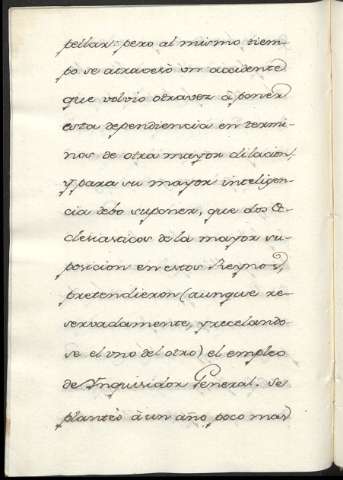 pellar: pero al mismo tiem-
po se atravesó un accidente
que volvio otravez à poner
esta dependiencia en termi-
nos de otra mayor dilacion,
y para su mayor inteligen-
cia debo suponer, que dos Ec-
clesiasticos de la mayor su-
posicion en estos Reynos,
pretendieron (aunque re-
servadamente, y recelando-
se el uno del otro) el empleo
de Ynquisidor General. Se
planteò à un año, poco mas